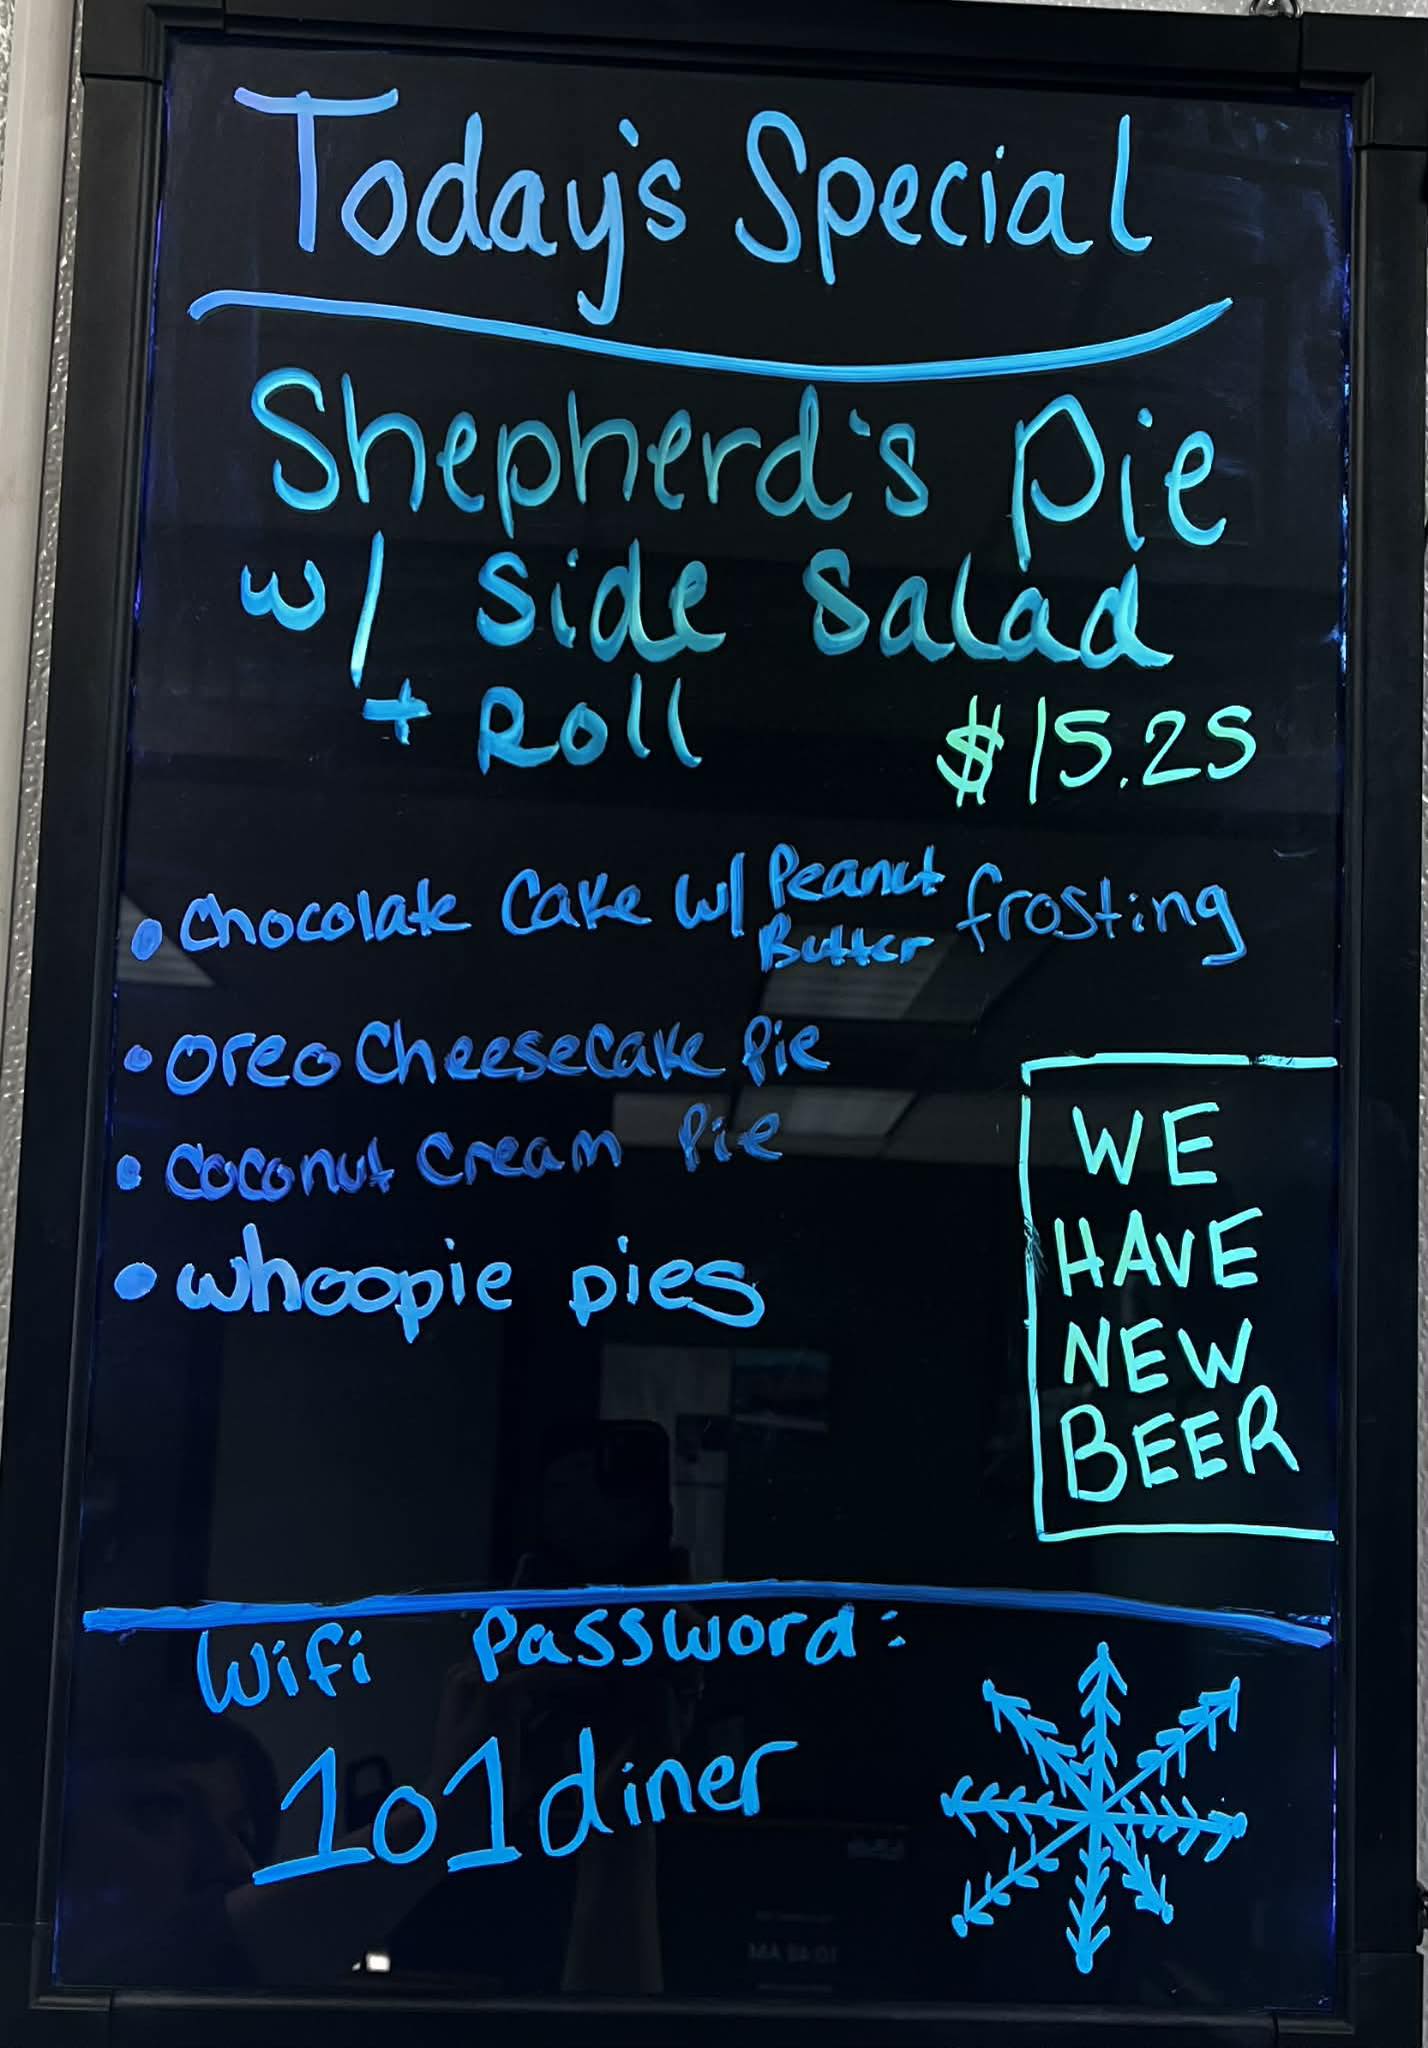 Today's Special
Shepherd's Pie
w/ Side Salad
+ Roll $15.25
• Chocolate Cake w/ Peanut Butter frosting
• oreo Cheesecake Pie
• Coconut Cream Pie
• whoopie pies
WE
HAVE
NEW
BEER
Wifi Password:
101diner